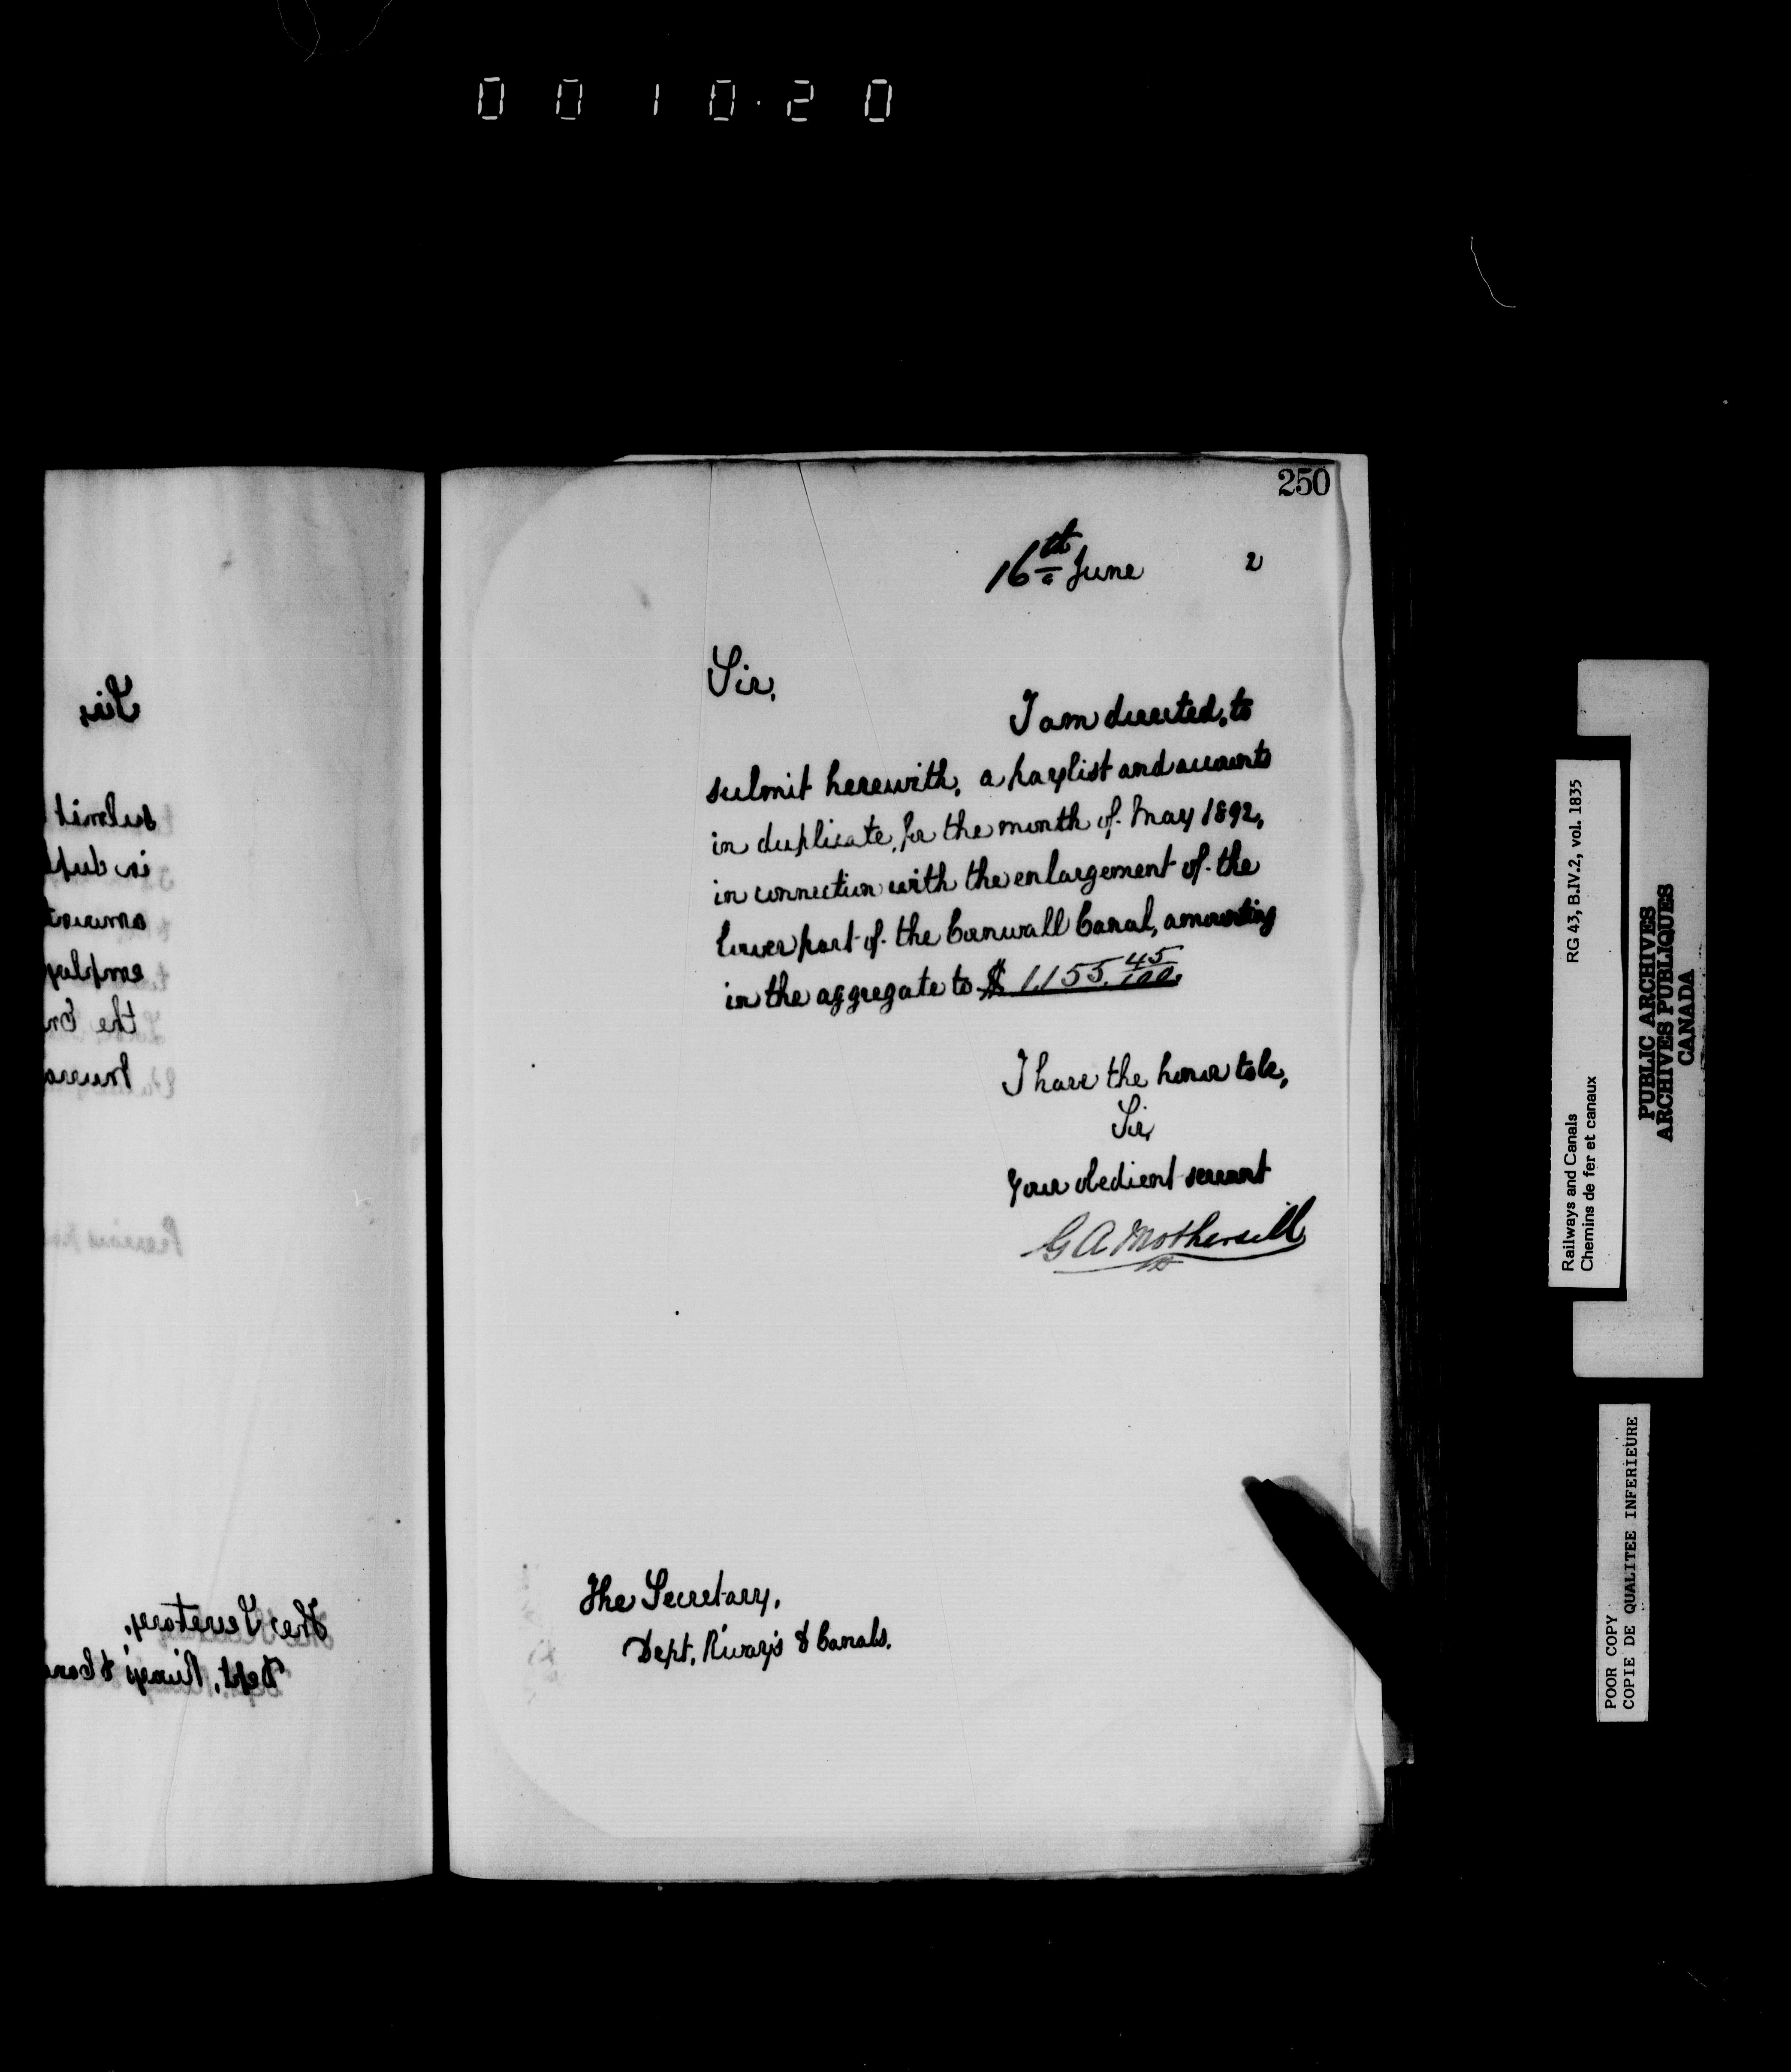 0 0 1 0 . 2 0
250
16th June 2
Sir,
I am directed, to
submit herewith, a paylist and accounts
in duplicate, for the month of May 1892,
in connection with the enlargement of the
lower part of the Cornwall Canal, amounting
in the aggregate to $ 1,155.45/100.
I have the honor to be,
Sir,
Your obedient servant
G A Mothersill
The Secretary,
Dept. R'ways & Canals.
Sir,
submit
in dup
amount
employ
the
The Secretary,
Dept. R'ways & Cana
Railways and Canals RG 43, B.IV.2, vol. 1835
Chemins de fer et canaux
PUBLIC ARCHIVES
ARCHIVES PUBLIQUES
CANADA
POOR COPY
COPIE DE QUALITEE INFERIEURE